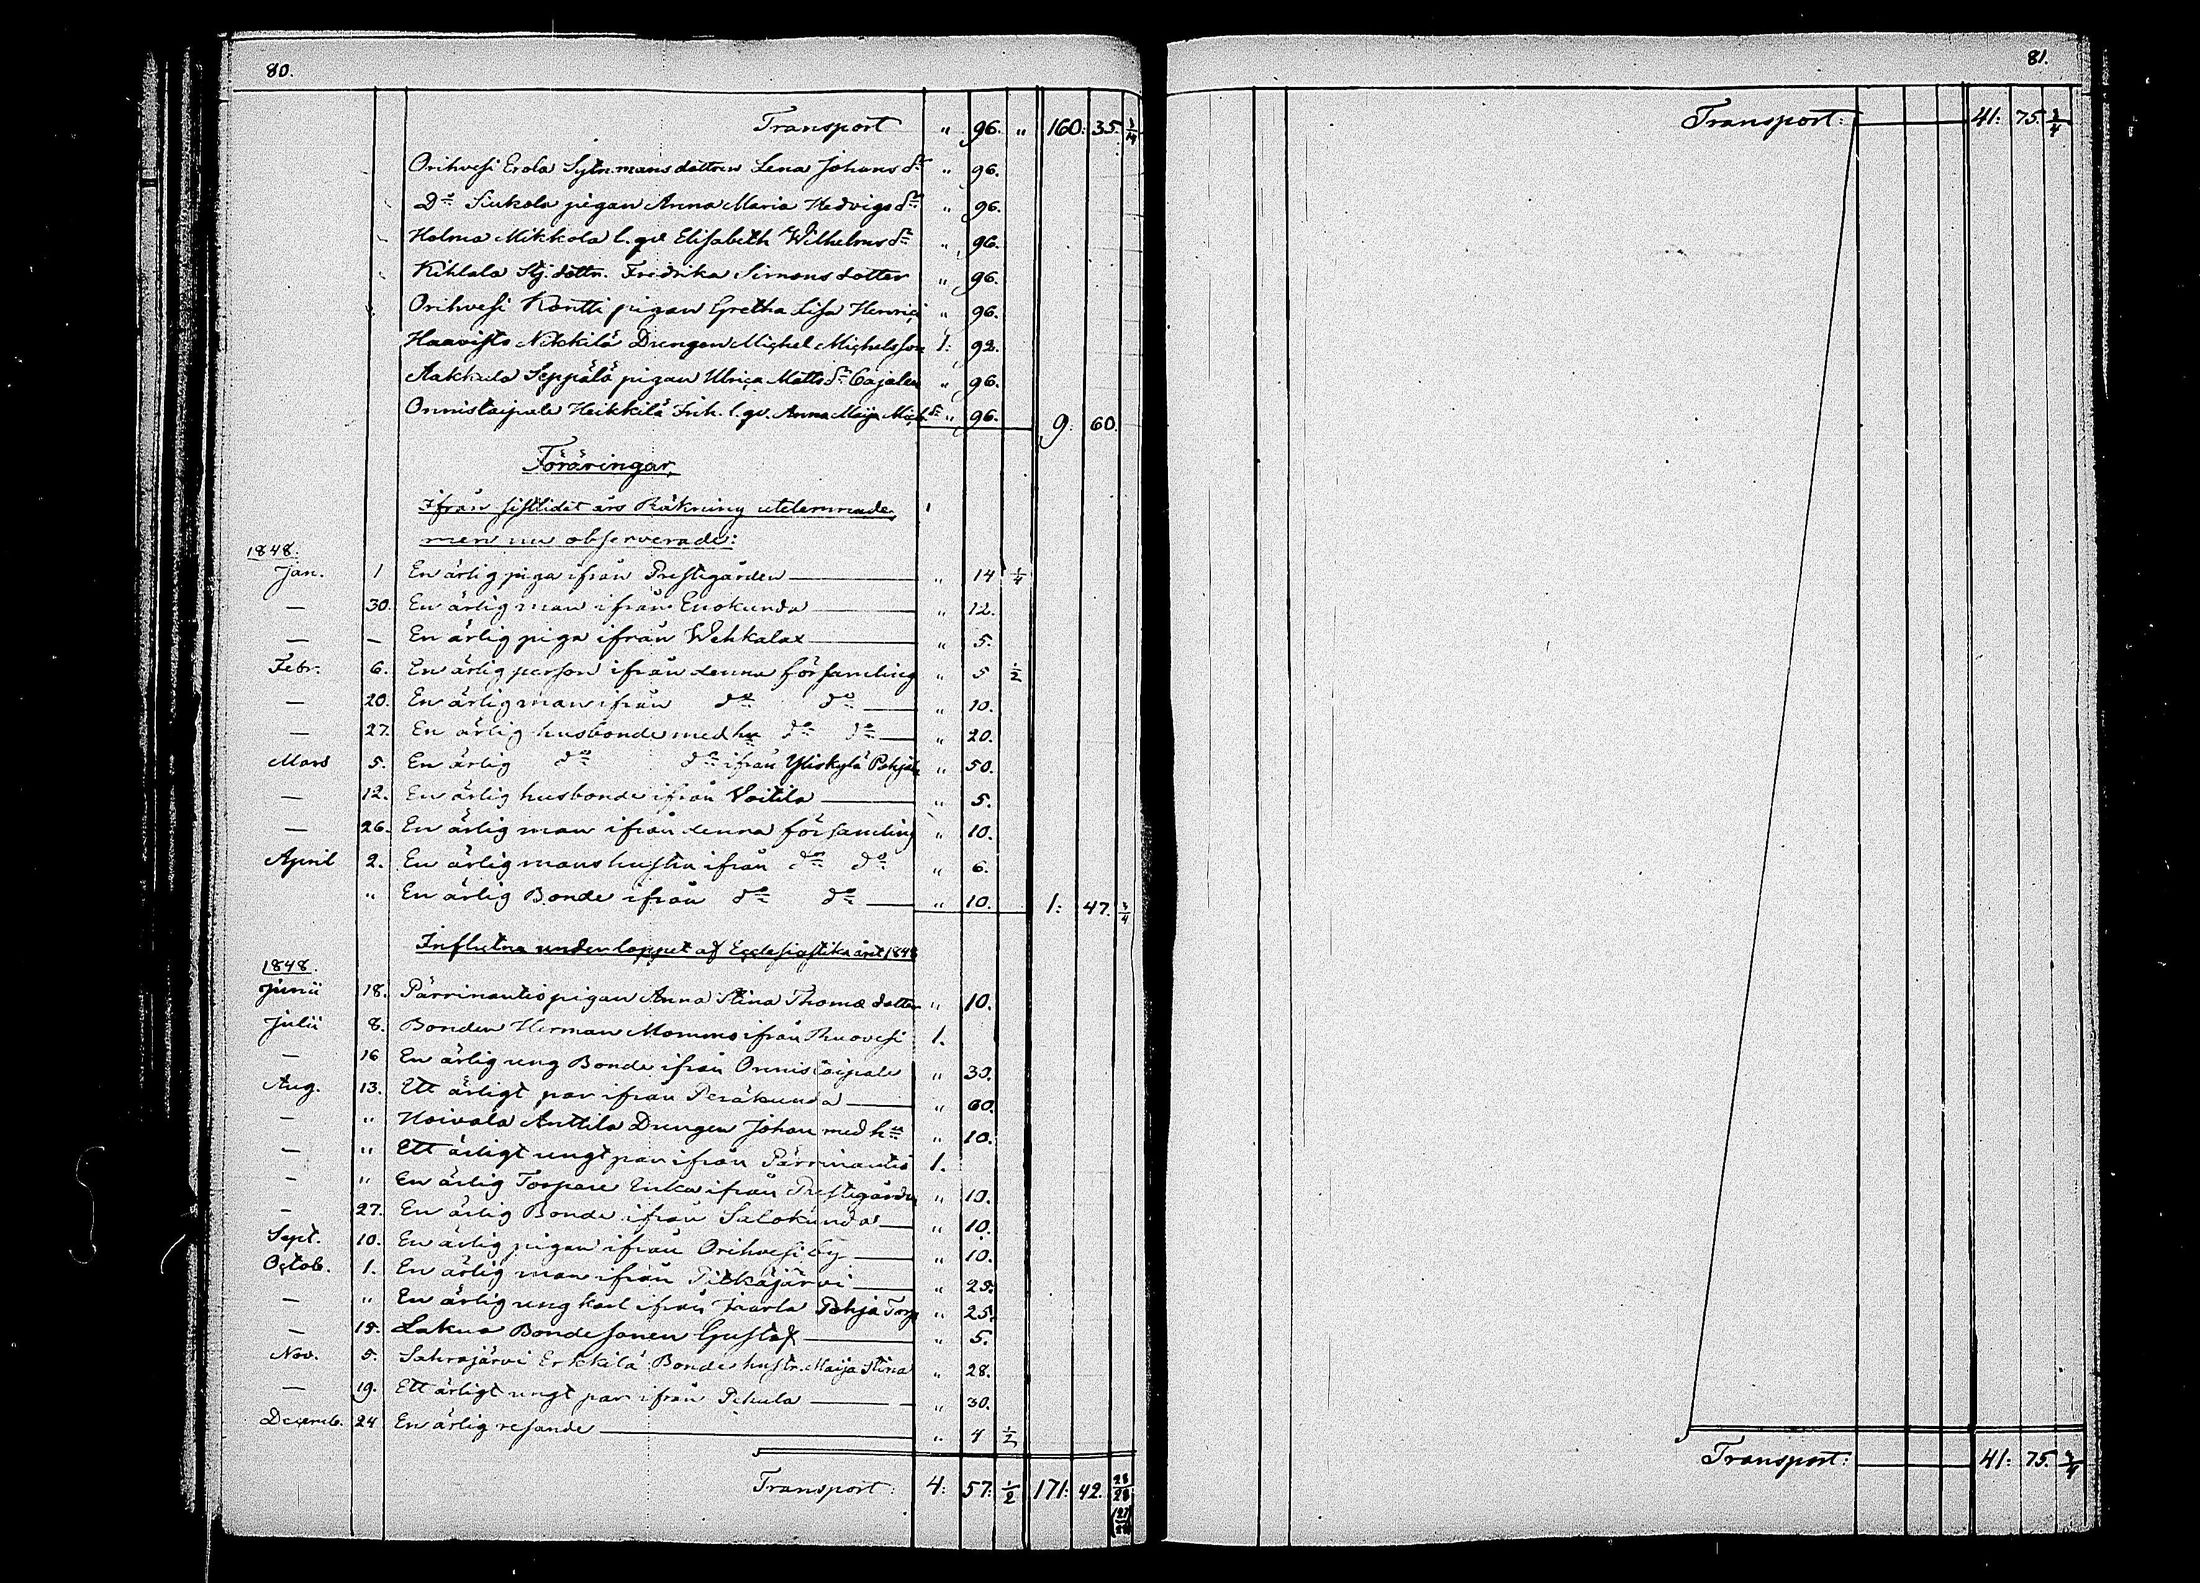 80.
Transport " 96. " 160: 35. 3/14
Orihvesi Erola Sytn.mansdottren Lena Johans dr " 96.
Do Siukola pigan Anna Maria Hedvigs dr " 96.
Holma Mikkola l. qv Elisabeth Wilhelms dr " 96.
Kihlala Stj. dottr. Fredrika Simonsdotter " 96.
Orihvesi Kontti pigan Gretha Lisa Henrici " 96.
Haavisto Nikkilä Drengen Michel Michelsson 1: 92.
Aakkula Seppälä pigan Ulrica Matts dr Cajalen " 96.
Onnistaipale Heikkilä Inh. l. qv. Anna Maja Mich. dr " 96. 9: 60.
Föräringar,
Ifrån sistlidet års Räkning utelemnade,
men nu observerade:
1848.
Jan. 1 En ärlig piga ifrån Prestgården " 14 1/4
— 30. En ärlig man ifrån Enokunda " 12.
— — En ärlig piga ifrån Wehkalax " 5.
Febr. 6. En ärlig person ifrån denna församling " 5 1/2
— 20. En ärlig man ifrån do do " 10.
— 27. En ärlig husbonde med hu do do " 20.
Mars 5. En ärlig do do ifrån Yliskylä Pohjala " 50.
— 12. En ärlig husbonde ifrån Voitila " 5.
— 26. En ärlig man ifrån denna församling " 10.
April 2. En ärlig mans hustru ifrån do do " 6.
" En ärlig Bonde ifrån do do " 10. 1: 47. 3/4
Influtna under loppet af Ecclesiastika året 1848
1848.
Junii 18. Pärrinautio pigan Anna Stina Thomædotter " 10.
Julii 8. Bonden Herman Mommo ifrån Ruovesi 1.
— 16 En ärlig ung Bonde ifrån Onnistaipale " 30.
Aug. 13. Ett ärligt par ifrån Peräkunda " 60.
— " Hoivala Anttila Drengen Johan med hu " 10.
— " Ett ärligt ungt par ifrån Pärrinautio 1.
— " En ärlig Torpare Enka ifrån Prestgården " 10.
— 27. En ärlig Bonde ifrån Salokunda " 10.
Sept. 10. En ärlig pigan ifrån Orihvesi by " 10.
Octob. 1. En ärlig man ifrån Pitkäjärvi " 25.
— " En ärlig ung karl ifrån Jaarla Pohja Torp " 25.
— 15. Lakua Bondesonen Gustaf " 5.
Nov. 5. Sahrajärvi Erkkilä Bonde hustr. Maija Stina " 28.
— 19. Ett ärligt ungt par ifrån Pehula " 30.
Decemb. 24 En ärlig resande " 4 1/2
Transport: 4: 57: 1/2 171: 42. 28/28
81.
Transport: 41: 75. 3/4
Transport: 41: 75. 3/4